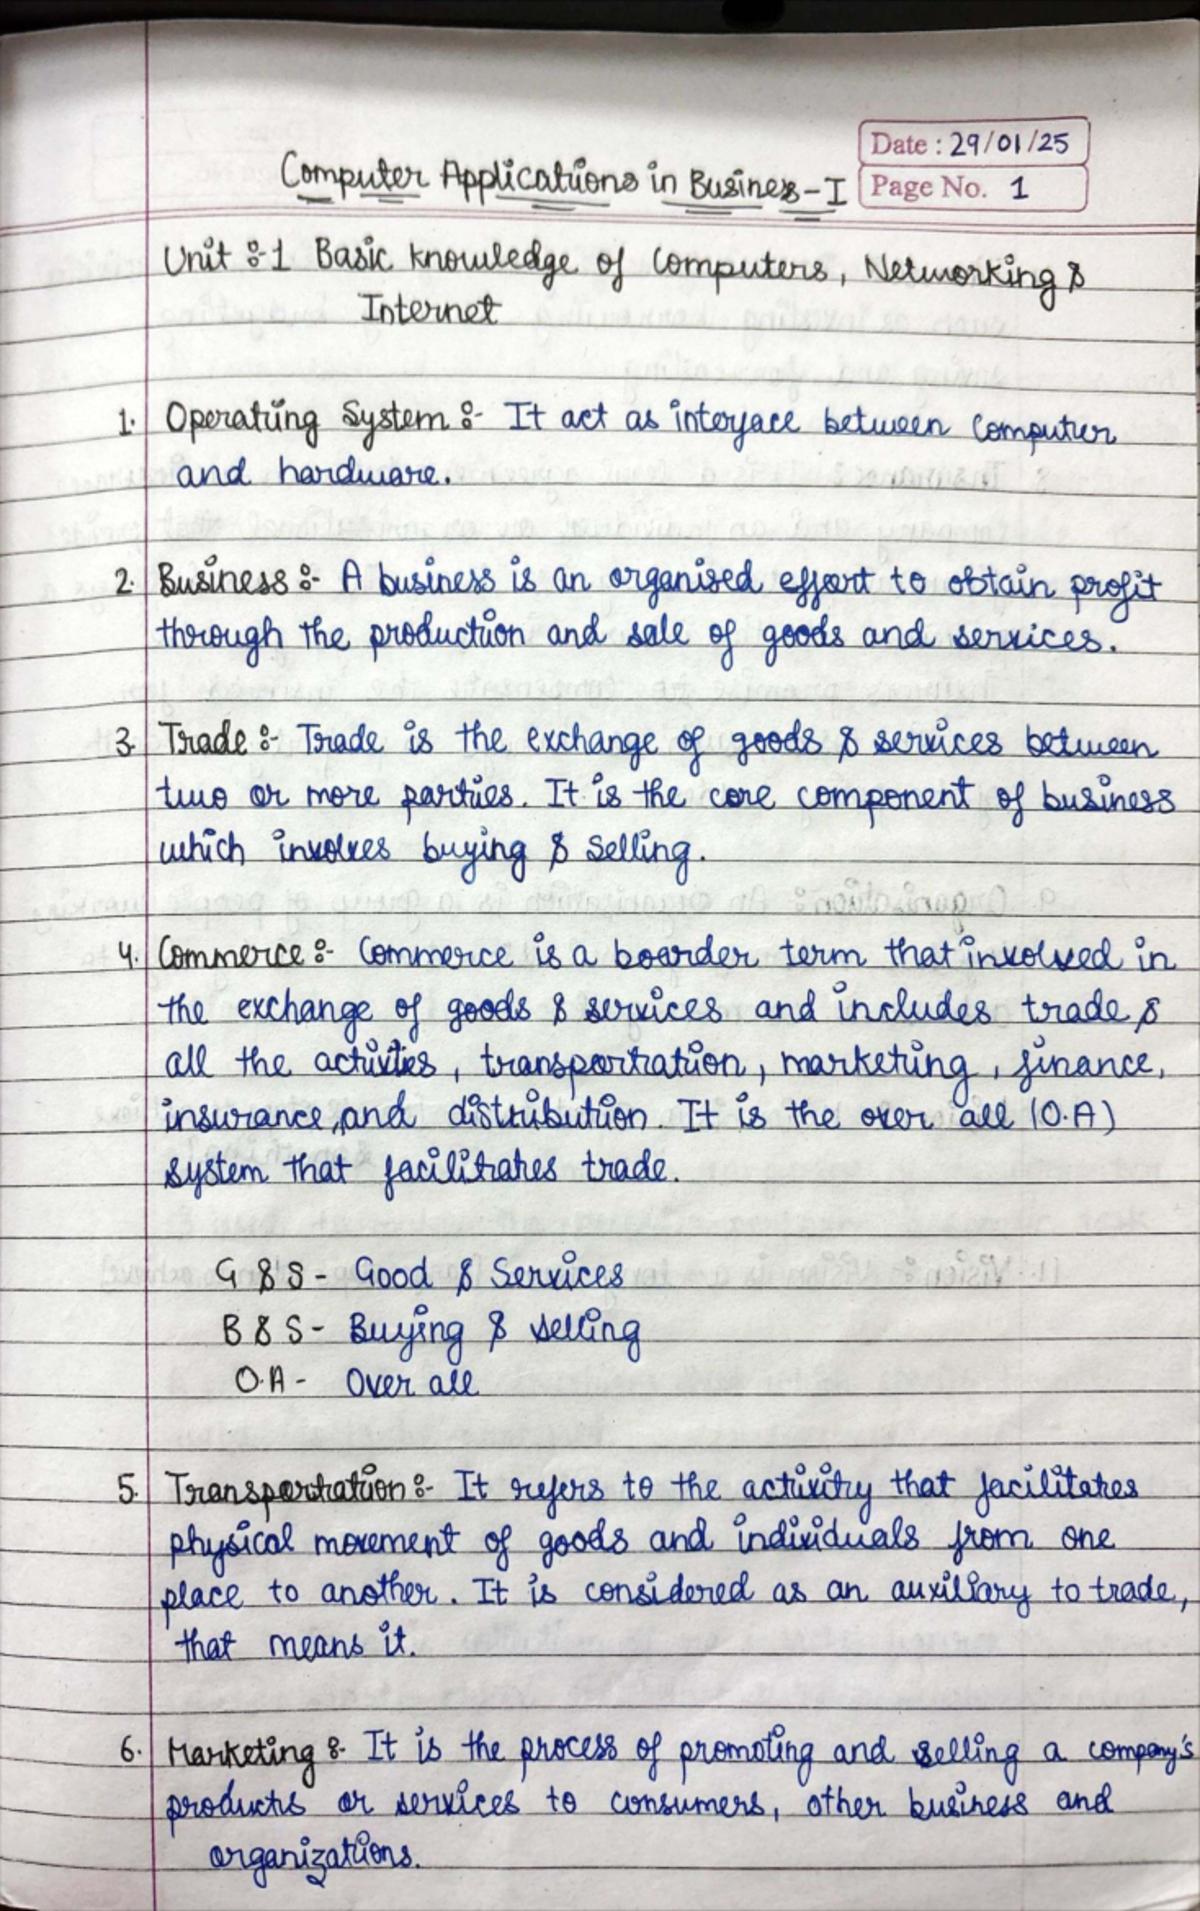 Date : 29/01/25
Computer Applications in Business-I
Page No. 1
Unit :-1 Basic knowledge of Computers, Networking &
Internet
1. Operating System :- It act as interface between Computer
and hardware.
2. Business :- A business is an organised effort to obtain profit
through the production and sale of goods and services.
3. Trade :- Trade is the exchange of goods & services between
two or more parties. It is the core component of business
which involves buying & Selling.
4. Commerce :- Commerce is a boarder term that involved in
the exchange of goods & services and includes trade &
all the activities, transportation, marketing, finance,
insurance, and distribution. It is the over all (O.A)
system that facilitates trade.
G & S - Good & Services
B & S - Buying & selling
O.A - Over all
5. Transportation :- It refers to the activity that facilitates
physical movement of goods and individuals from one
place to another. It is considered as an auxiliary to trade,
that means it.
6. Marketing :- It is the process of promoting and selling a company's
products or services to consumers, other business and
organizations.